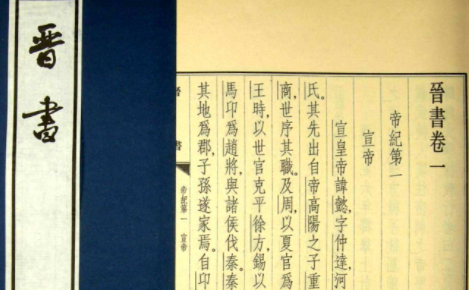 晉書
晉書卷一
帝紀第一
宣帝
宣皇帝諱懿,字仲達,河
氏。其先出自帝高陽之子重
南,世序其職。及周,以夏官爲
王時,以世官克平徐方,錫以
馬卬爲趙將,與諸侯伐秦。秦
其地爲郡,子孫遂家焉。自卬
書
帝紀第一 宣帝